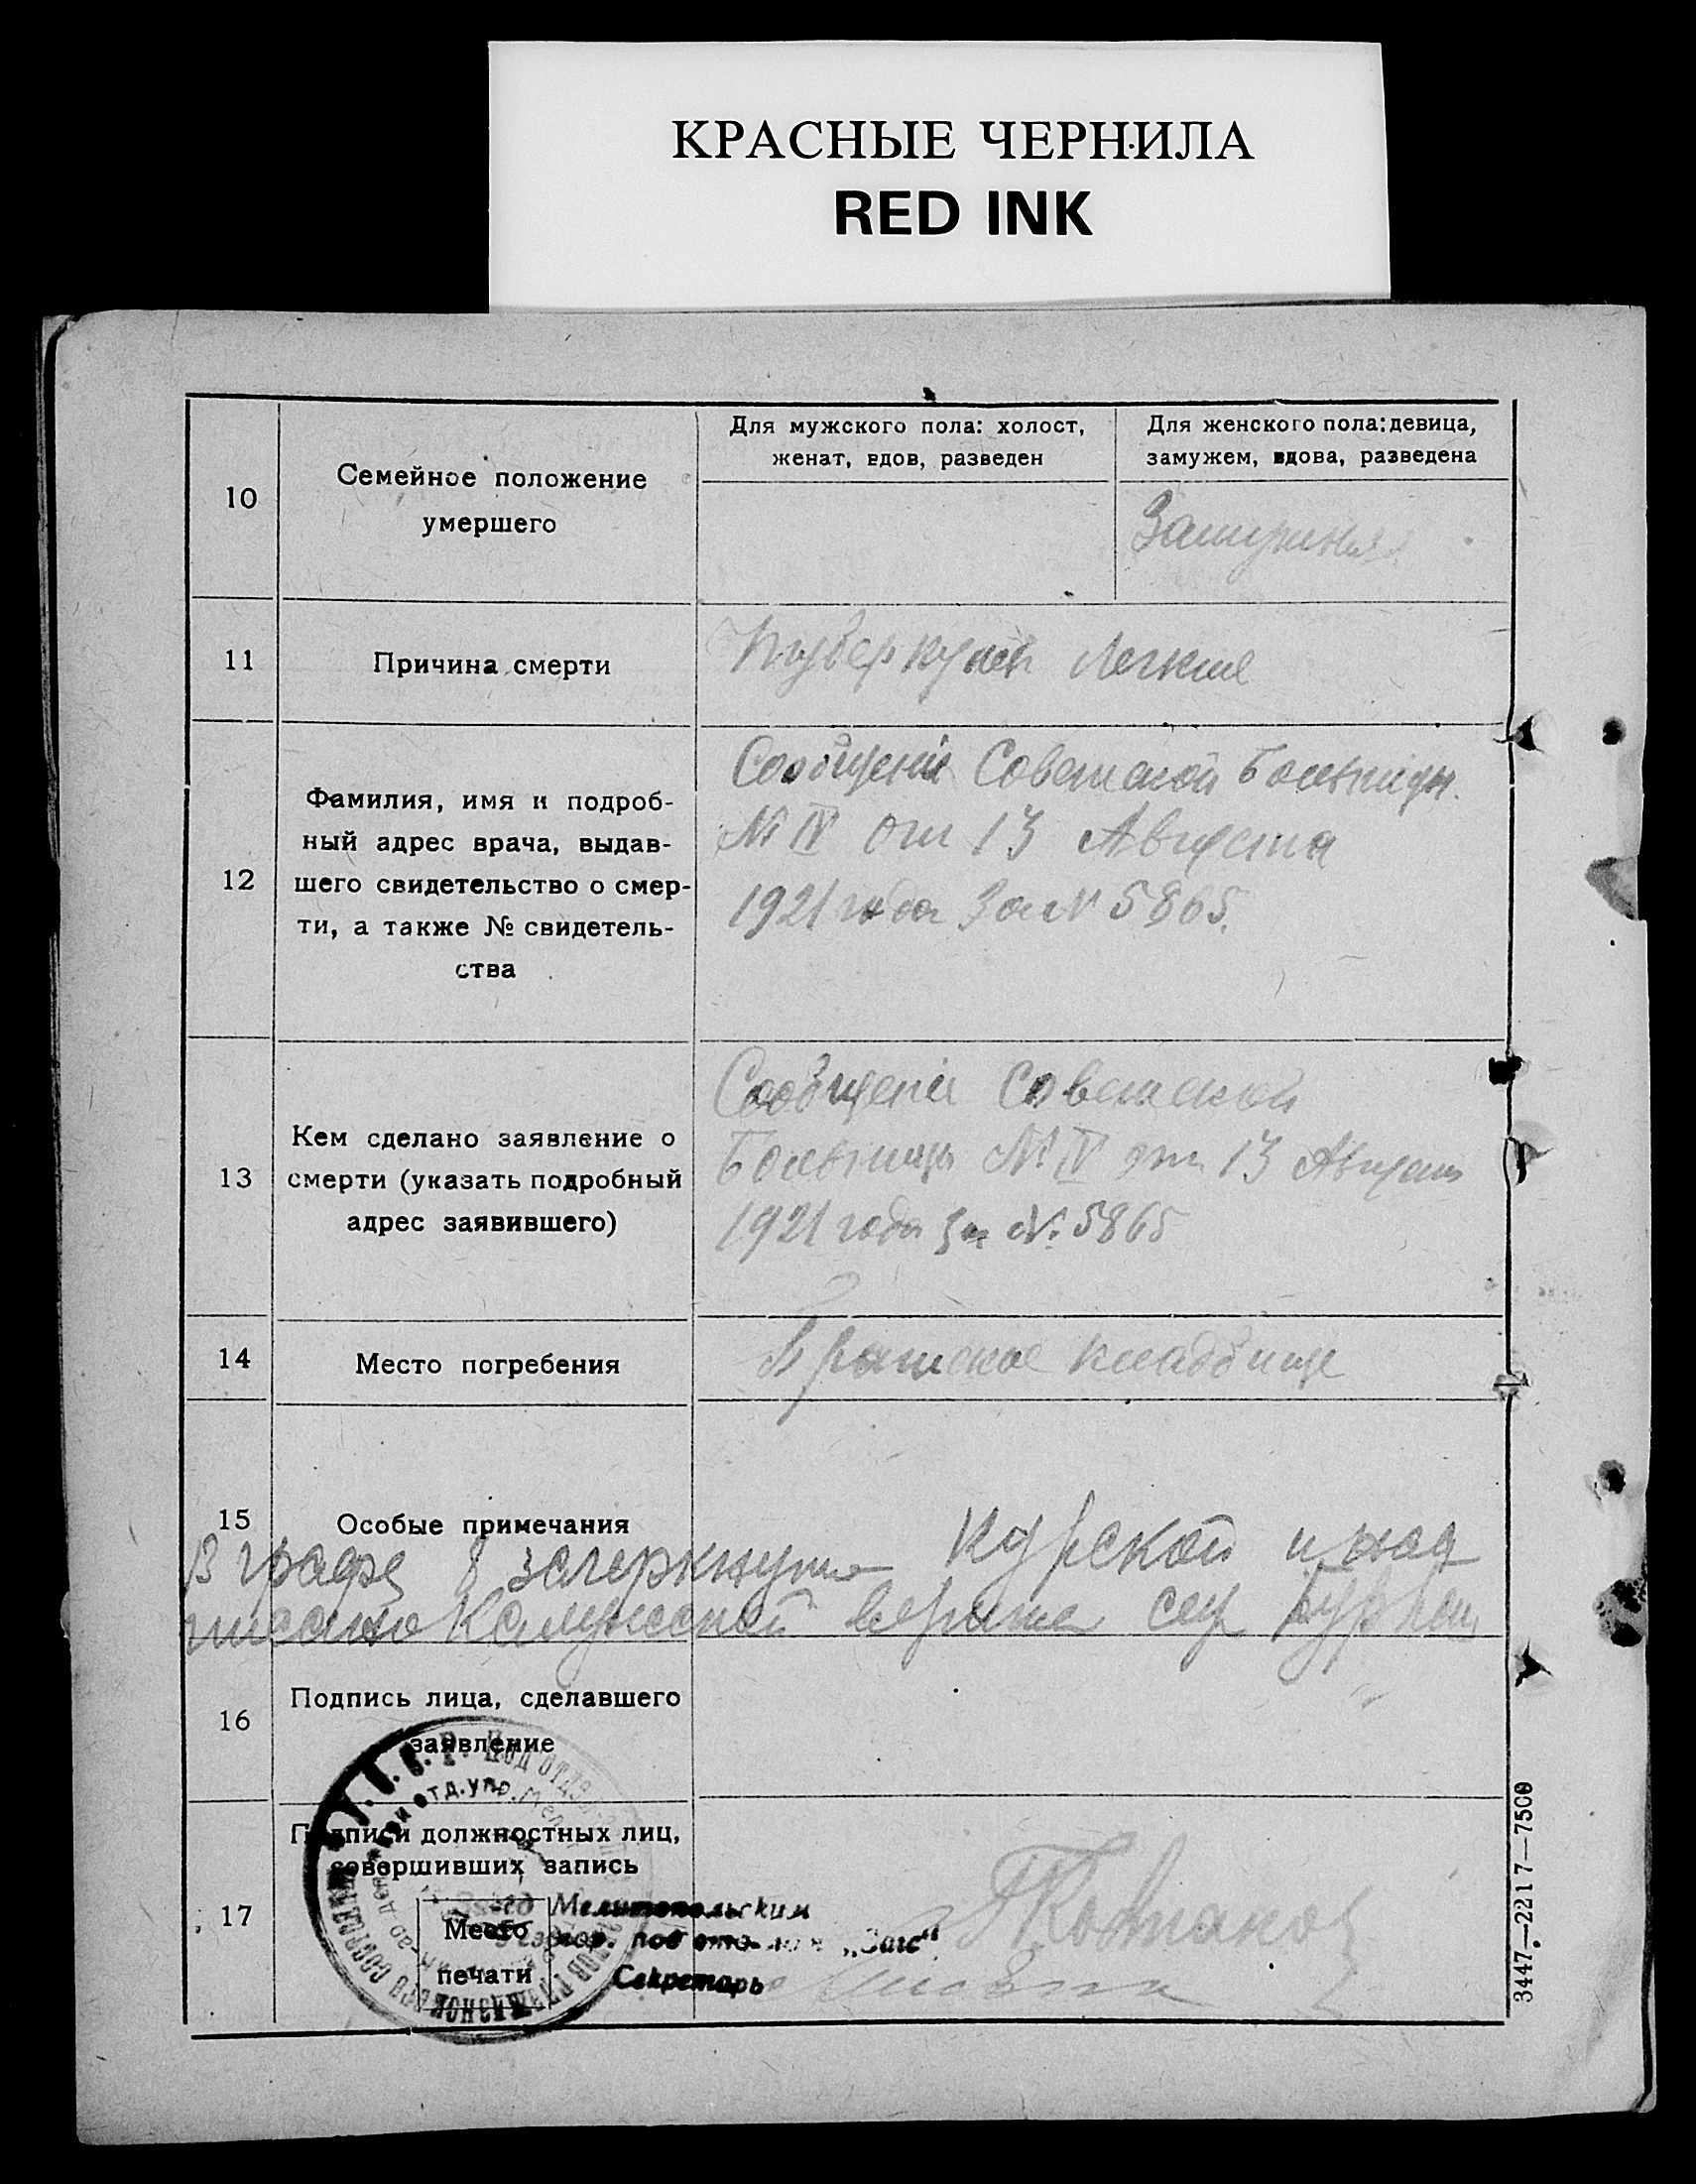 КРАСНЫЕ ЧЕРНИЛА
RED INK
10
Семейное положение
умершего
Для мужского пола: холост,
женат, вдов, разведен
Для женского пола: девица,
замужем, вдова, разведена
Замужняя
11
Причина смерти
Туберкулез Легкие
12
Фамилия, имя и подроб-
ный адрес врача, выдав-
шего свидетельство о смер-
ти, а также № свидетель-
ства
Сообщенія Советской Больницы.
№ IV от 13 Августа
1921 года За № 5865.
13
Кем сделано заявление о
смерти (указать подробный
адрес заявившего)
Сообщенія Советской
Больницы № IV от 13 Августа
1921 года за №. 5865
14
Место погребения
Братское кладбище
15
Особые примечания
В графе 8 зачеркнуто Курской и над
писано Калужской
16
Подпись лица, сделавшего
заявление
17
Подписи должностных лиц,
совершивших запись
Место
печати
Мелитопольским
„Загс“
Секретарь
3447.—2217—7500